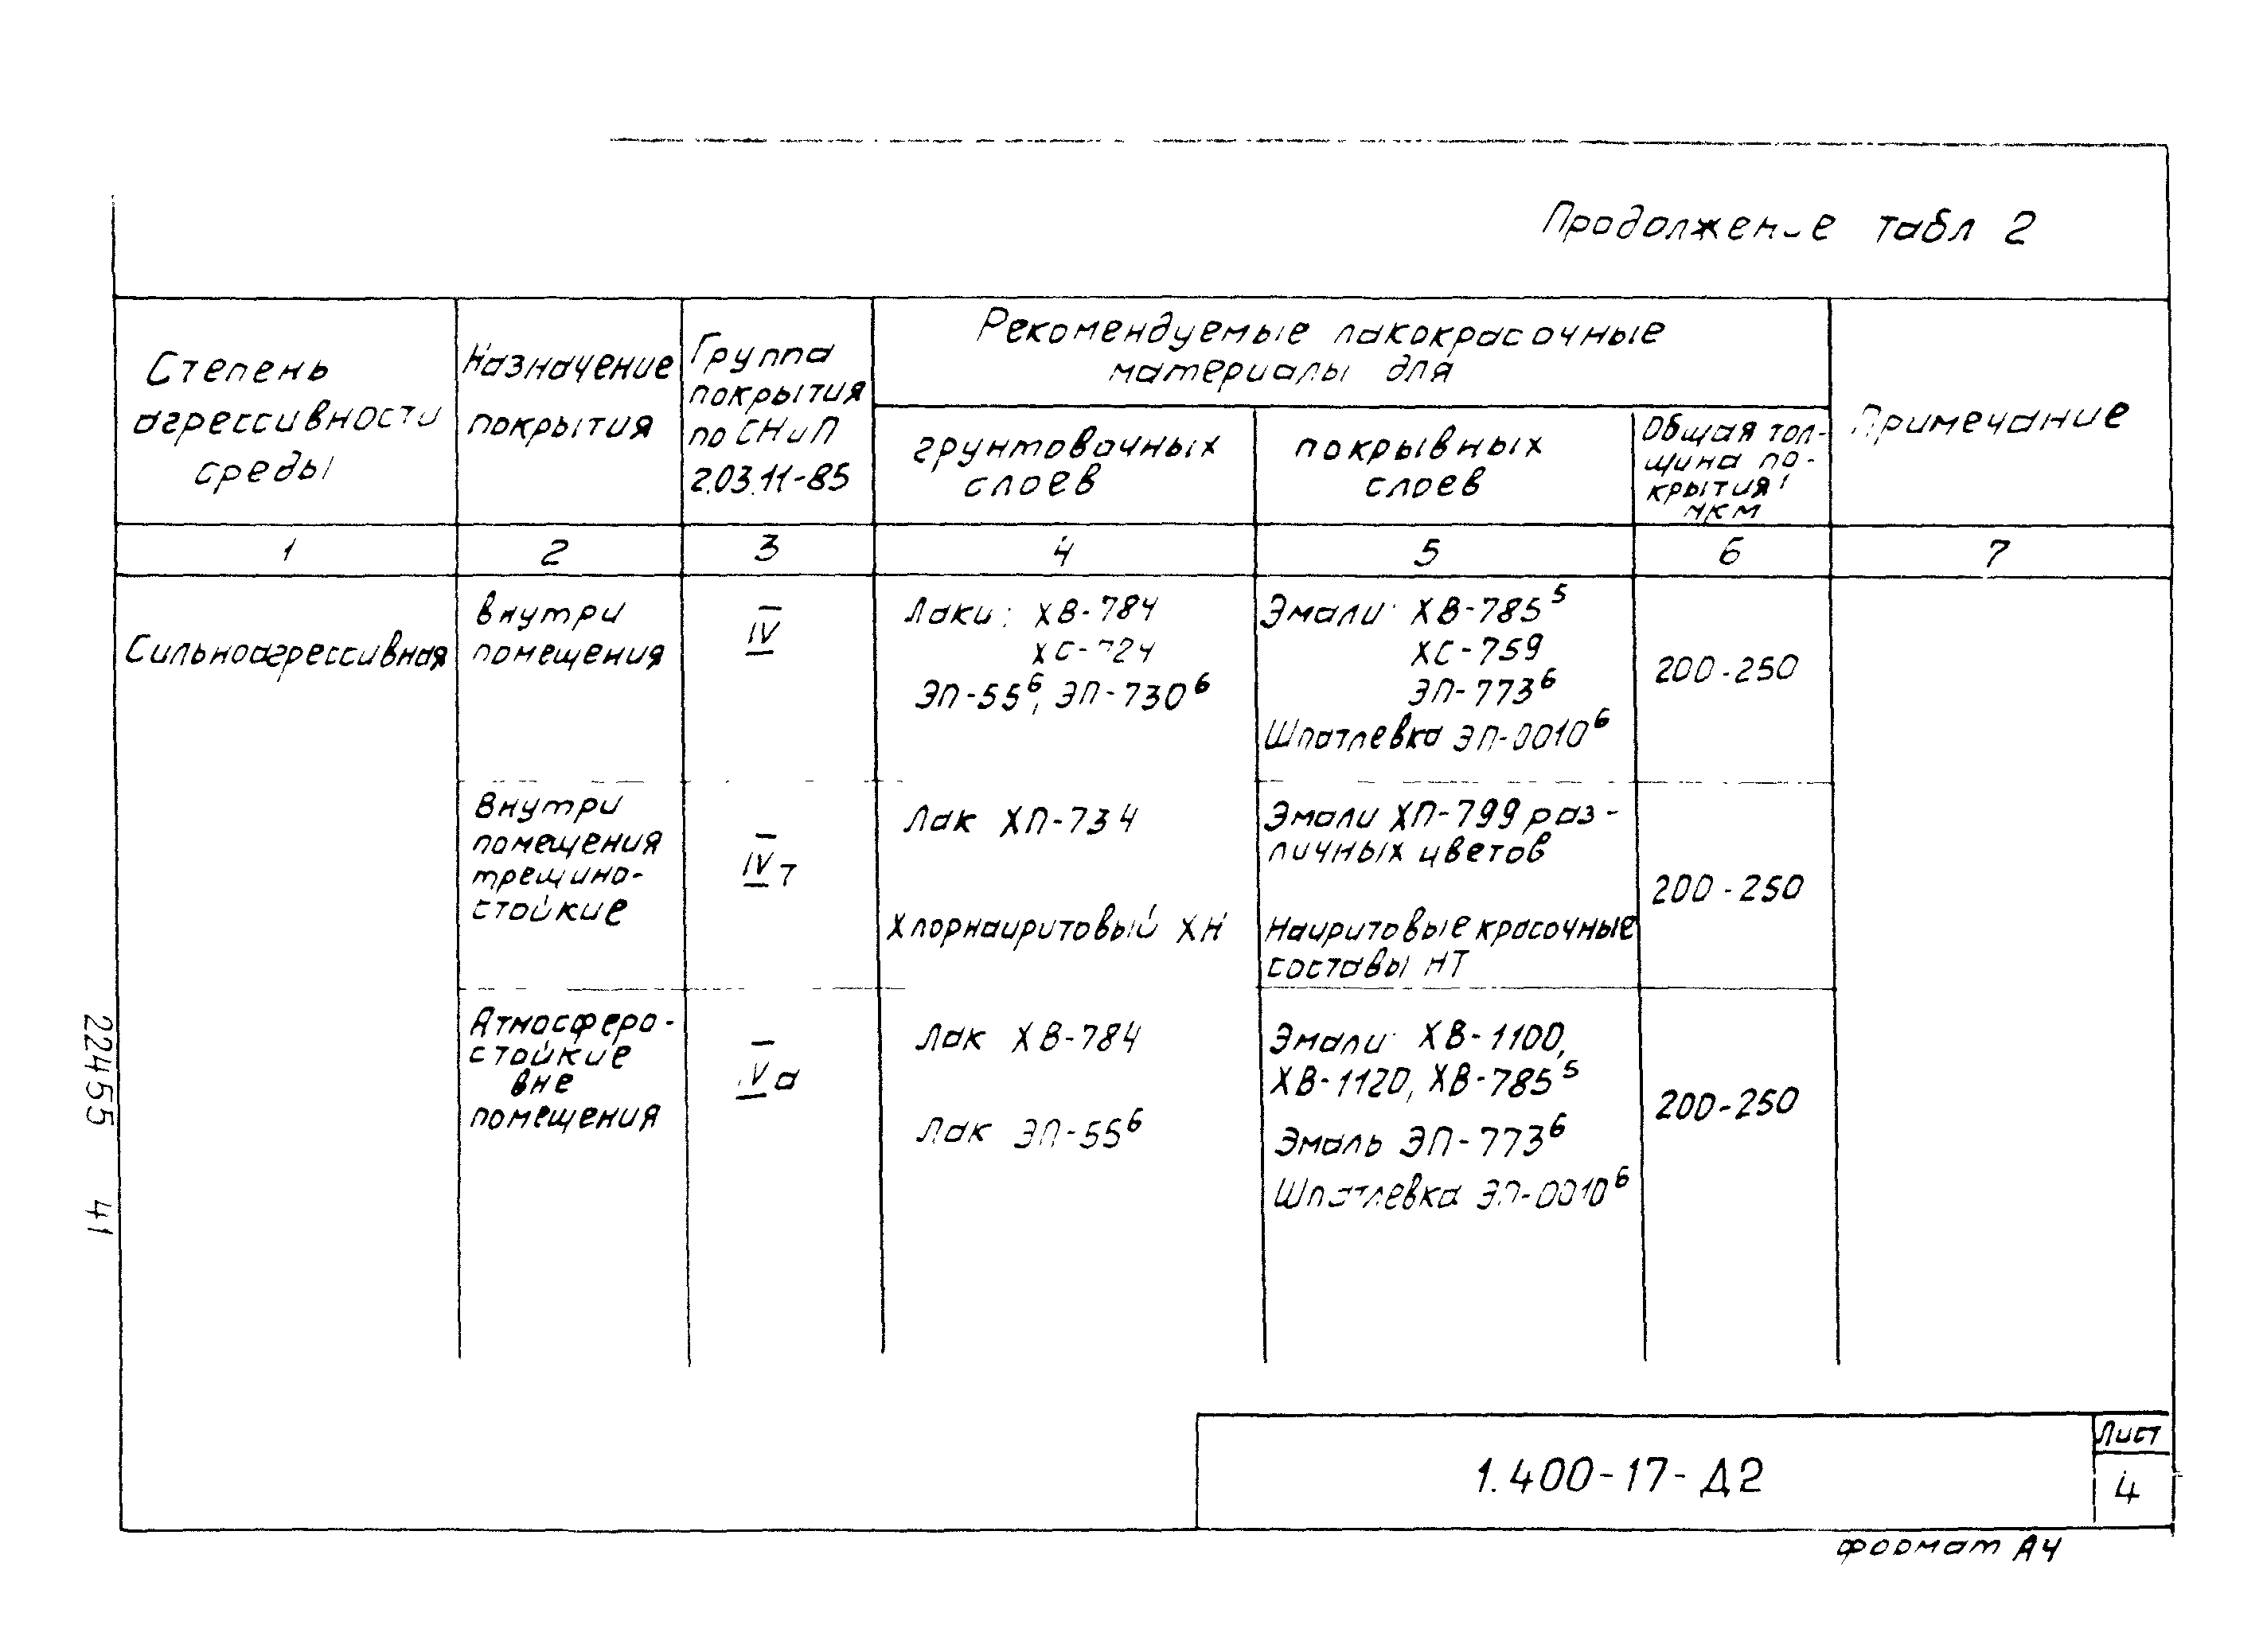 Продолжение табл 2
Степень
агрессивности
среды
Назначение
покрытия
Группа
покрытия
по СНиП
2.03.11-85
Рекомендуемые лакокрасочные
материалы для
грунтовочных
слоев
покрывных
слоев
Общая тол-
щина по-
крытия¹
мкм
Примечание
1 2 3 4 5 6 7
Сильноагрессивная
внутри
помещения
IV
Лаки: ХВ-784
ХС-724
ЭП-55⁶, ЭП-730⁶
Эмали: ХВ-785⁵
ХС-759
ЭП-773⁶
Шпатлевка ЭП-0010⁶
200-250
Внутри
помещения
трещино-
стойкие
IVт
Лак ХП-734
Хлорнаиритовый ХН
Эмали ХП-799 раз-
личных цветов
Наиритовые красочные
составы НТ
200-250
Атмосферо-
стойкие
вне
помещения
IVа
Лак ХВ-784
Лак ЭП-55⁶
Эмали: ХВ-1100,
ХВ-1120, ХВ-785⁵
Эмаль ЭП-773⁶
Шпатлевка ЭП-0010⁶
200-250
22455 41
1.400-17-Д2
Лист
4
формат А4